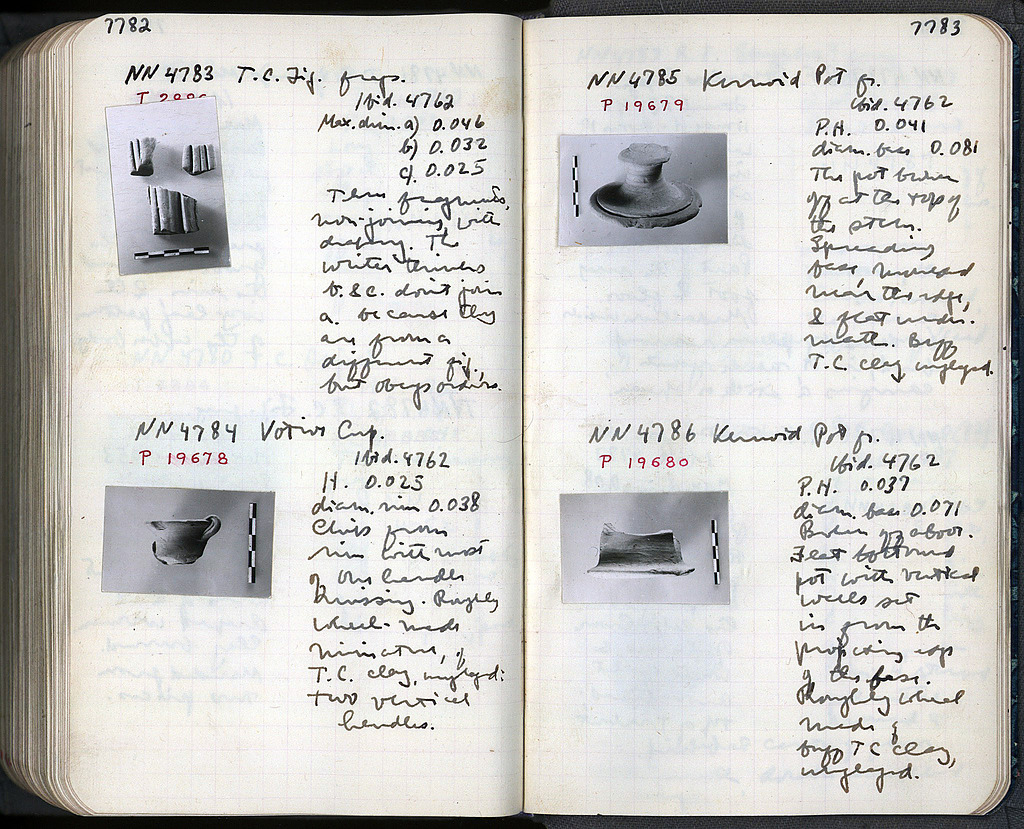 7782
NN 4783 T.C. Fig. frags.
Ibid. 4762
Max. dim. a) 0.046
b) 0.032
c) 0.025
Three fragments,
non-joining, with
drapery. The
writer thinks
b. & c. don't join
a. because they
are from a
different fig.,
but obeys orders.
NN 4784 Votive Cup.
P 19678
Ibid. 4762
H. 0.025
diam. rim 0.038
Chips from
rim with most
of one handle
missing. Roughly
wheel-made
miniature, of
T.C. clay, unglazed:
two vertical
handles.
7783
NN 4785 Kernoid Pot fr.
P 19679
Ibid. 4762
P.H. 0.041
diam. base 0.081
The pot broken
off at the top of
the stem.
Spreading
base,
near the edge,
& flat under-
neath. Buff
T.C. clay, unglazed.
NN 4786 Kernoid Pot fr.
P 19680
Ibid. 4762
P.H. 0.037
diam. base 0.071
Broken off above.
Flat bottomed
pot with vertical
walls set
in from the
projecting edge
of the base.
Roughly wheel
made of
buff T C clay,
unglazed.